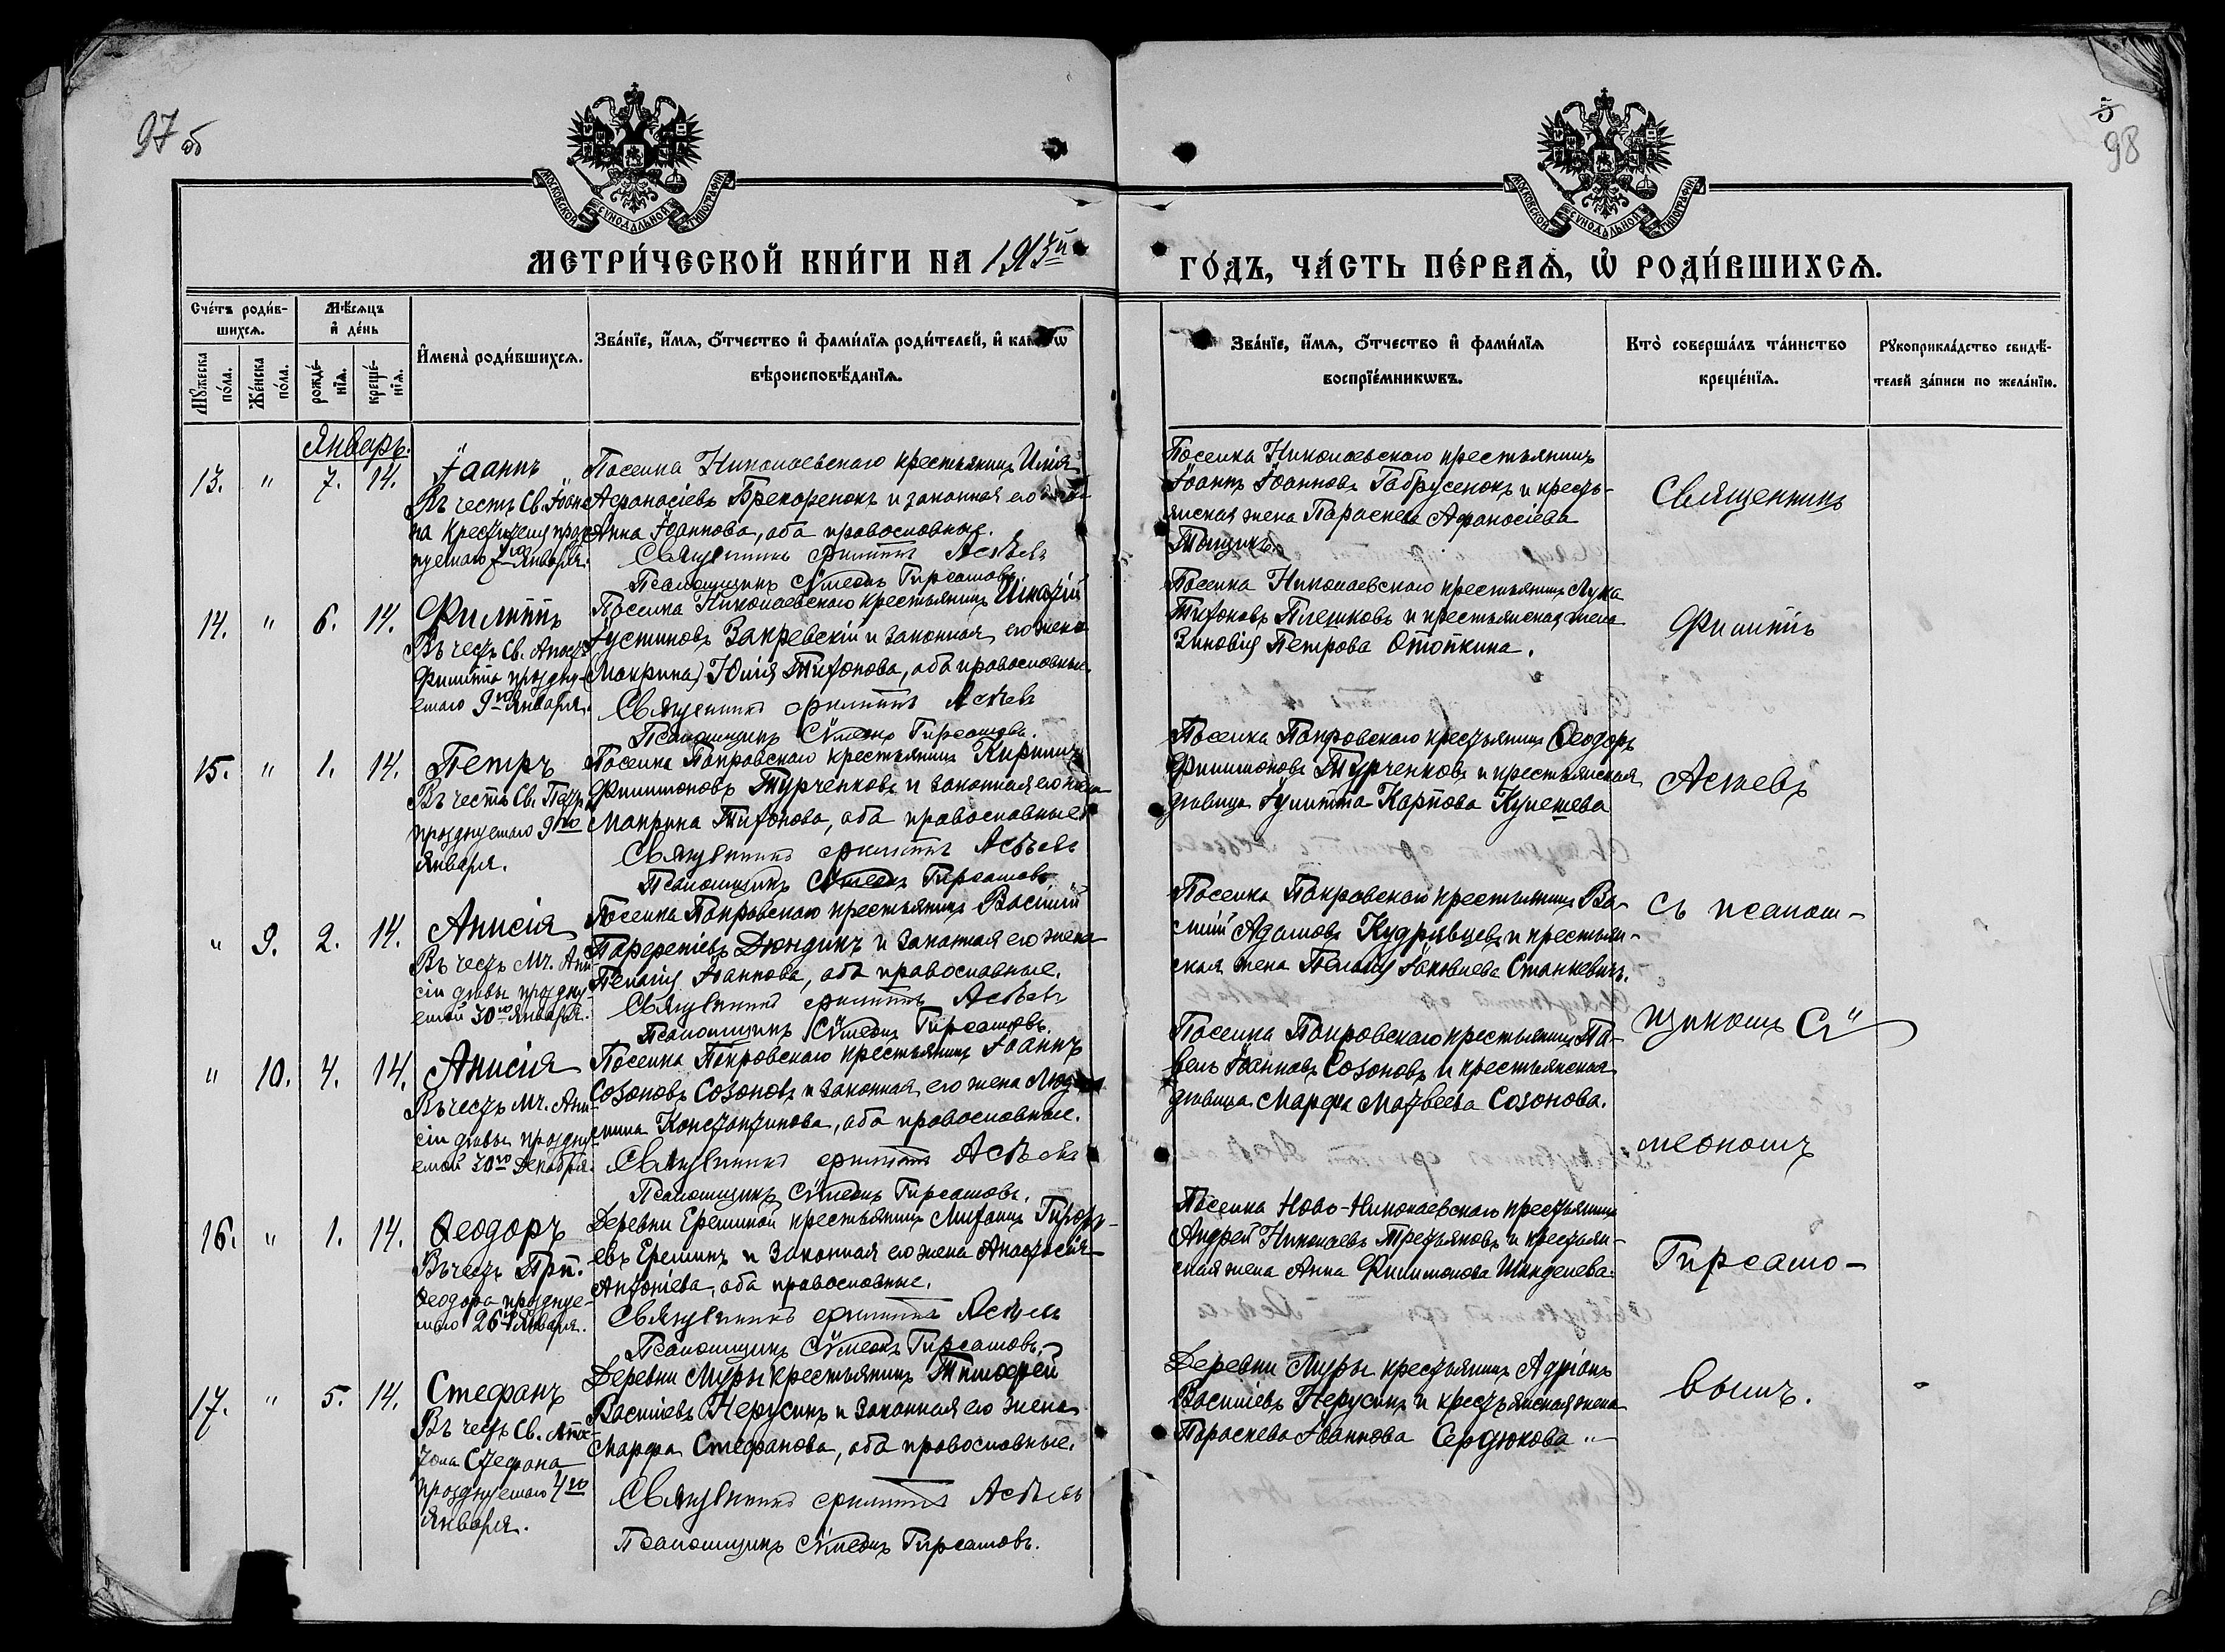 97 об
5
98
МОСКОВСКОЙ СѴНОДАЛЬНОЙ ТИПОГРАФІИ
МОСКОВСКОЙ СѴНОДАЛЬНОЙ ТИПОГРАФІИ
МЕТРИ́ЧЕСКОЙ КНИ́ГИ НА 1913й
ГО́ДЪ, ЧА́СТЬ ПЕ́РВАѦ, Ѡ҆ РОДИ́ВШИХСѦ.
Сче́тъ роди́в-
шихсѧ.
Мѣ́сѧцъ
и҆ де́нь
Мꙋ́жеска по́ла.
Же́нска по́ла.
рожде́-
нїѧ.
креще́-
нїѧ.
И҆мена̀ роди́вшихсѧ.
Зва́нїе, и҆́мѧ, ѻ҆́тчество и҆ фами́лїѧ роди́телей, и҆
вѣроисповѣ́данїѧ.
Зва́нїе, и҆́мѧ, ѻ҆́тчество и҆ фами́лїѧ
воспрїе́мникѡвъ.
Кто̀ соверша́лъ та́инство
креще́нїѧ.
Рꙋкоприкла́дство свидѣ́-
телей за́писи по жела́нїю.
Январь.
13. " 7. 14. Іоаннъ
Въ честь Св. Іоан-
на Крестителя празд-
нуемаго 7го Января.
Поселка Николаевскаго крестьянинъ Илія
Афанасіевъ Брекоренокъ и законная его жена
Анна Іоаннова, оба православные.
Священникъ Филиппъ Асѣевъ
Псаломщикъ Сѵмеонъ Гирсамовъ.
Поселка Николаевскаго крестьянинъ
Іоаннъ Іоанновъ Габрусенокъ и кресть-
янская жена Параскева Афанасіева
14. " 6. 14. Филиппъ
Въ честь Св. Апост.
Филиппа праздну-
емаго 9го Января.
Поселка Николаевскаго крестьянинъ
Іустиновъ Закревскій и законная его жена
(Макрина) Юлія Тихонова, оба православные.
Священникъ Филиппъ Асѣевъ
Псаломщикъ Сѵмеонъ Гирсамовъ.
Поселка Николаевскаго крестьянинъ Лука
Тихоновъ Плешковъ и крестьянская жена
Зиновія Петрова Отопкина.
15. " 1. 14. Петръ
Въ честь Св. Петра
празднуемаго 9го
Января.
Поселка Покровскаго крестьянинъ Кириллъ
Филимоновъ Турченковъ и законная его жена
Макрина Тихонова, оба православные
Священникъ Филиппъ Асѣевъ
Псаломщикъ Сѵмеонъ Гирсамовъ.
Поселка Покровскаго крестьянинъ Ѳеодоръ
Филимоновъ Турченковъ и крестьянская
дѣвица Іулитта Карпова Кулешева
" 9. 2. 14. Анисія
Въ честь Мч. Ани-
сіи дѣвы праздну-
емой 30го Января.
Поселка Покровскаго крестьянинъ Василій
Парфеніевъ Дюндинъ и законная его жена
Пелагія Іоаннова, оба православные.
Священникъ Филиппъ Асѣевъ
Псаломщикъ Сѵмеонъ Гирсамовъ.
Поселка Покровскаго крестьянинъ Ва-
силій Адамовъ Кудрявцевъ и крестьян-
ская жена Пелагія Іаковлева Станкевичъ.
" 10. 4. 14. Анисія
Въ честь Мч. Ани-
сіи дѣвы праздну-
емой 30го Декабря.
Поселка Покровскаго крестьянинъ Іоаннъ
Созоновъ Созоновъ и законная его жена Люд-
мила Константинова, оба православные.
Священникъ Филиппъ Асѣевъ
Псаломщикъ Сѵмеонъ Гирсамовъ.
Поселка Покровскаго крестьянинъ Па-
велъ Іоанновъ Созоновъ и крестьянская
дѣвица Марфа Матвеева Созонова.
16. " 1. 14. Ѳеодоръ
Въ честь Прп.
Ѳеодора праздуе-
маго 26го Января.
Деревни Ереминой крестьянинъ
евъ Ереминъ и законная его жена Анастасія
Антоніева, оба православные.
Священникъ Филиппъ Асѣевъ
Псаломщикъ Сѵмеонъ Гирсамовъ.
Поселка Ново-Николаевскаго крестьянинъ
Андрей Николаевъ Третьяковъ и крестьян-
ская жена Анна Филимонова Шинделева.
17. " 5. 14. Стефанъ
Въ честь Св. Апос-
тола Стефана
празднуемаго 4го
Января.
Деревни Муры крестьянинъ Тимофей
Василіевъ Нерусинъ и законная его жена
Марфа Стефанова, оба православные.
Священникъ Филиппъ Асѣевъ
Псаломщикъ Сѵмеонъ Гирсамовъ.
Деревни Муры крестьянинъ Адріанъ
Василіевъ Нерусинъ и крестьянская жена
Параскева Іоаннова Сердюкова
Священникъ
Филиппъ
Асѣевъ
съ псалом-
щикомъ Сѵ
меономъ
Гирсамо-
вымъ.